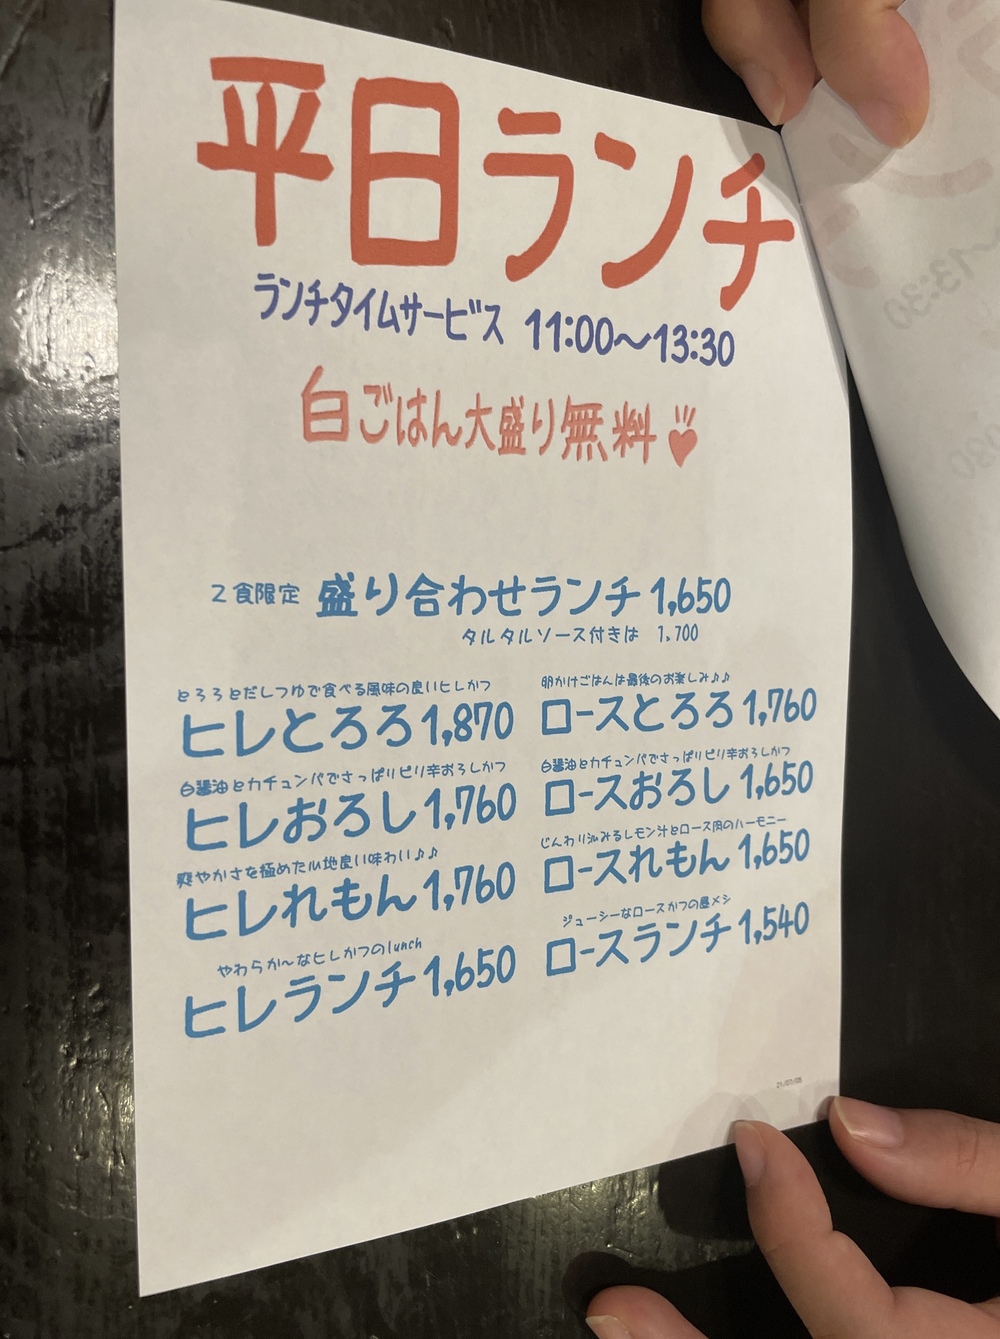 平日ランチ
ランチタイムサービス 11:00〜13:30
白ごはん大盛り無料
2食限定 盛り合わせランチ 1,650
タルタルソース付きは 1,700
とろろとだしつゆで食べる風味の良いヒレかつ
ヒレとろろ 1,870
白醤油とカチュンバでさっぱりピリ辛おろしかつ
ヒレおろし 1,760
爽やかさを極めた心地良い味わい♪♪
ヒレれもん 1,760
やわらか〜なヒレかつのlunch
ヒレランチ 1,650
卵かけごはんは最後のお楽しみ♪♪
ロースとろろ 1,760
白醤油とカチュンバでさっぱりピリ辛おろしかつ
ロースおろし 1,650
じんわり沁みるレモン汁とロース肉のハーモニー
ロースれもん 1,650
ジューシーなロースかつの昼メシ
ロースランチ 1,540
13:30